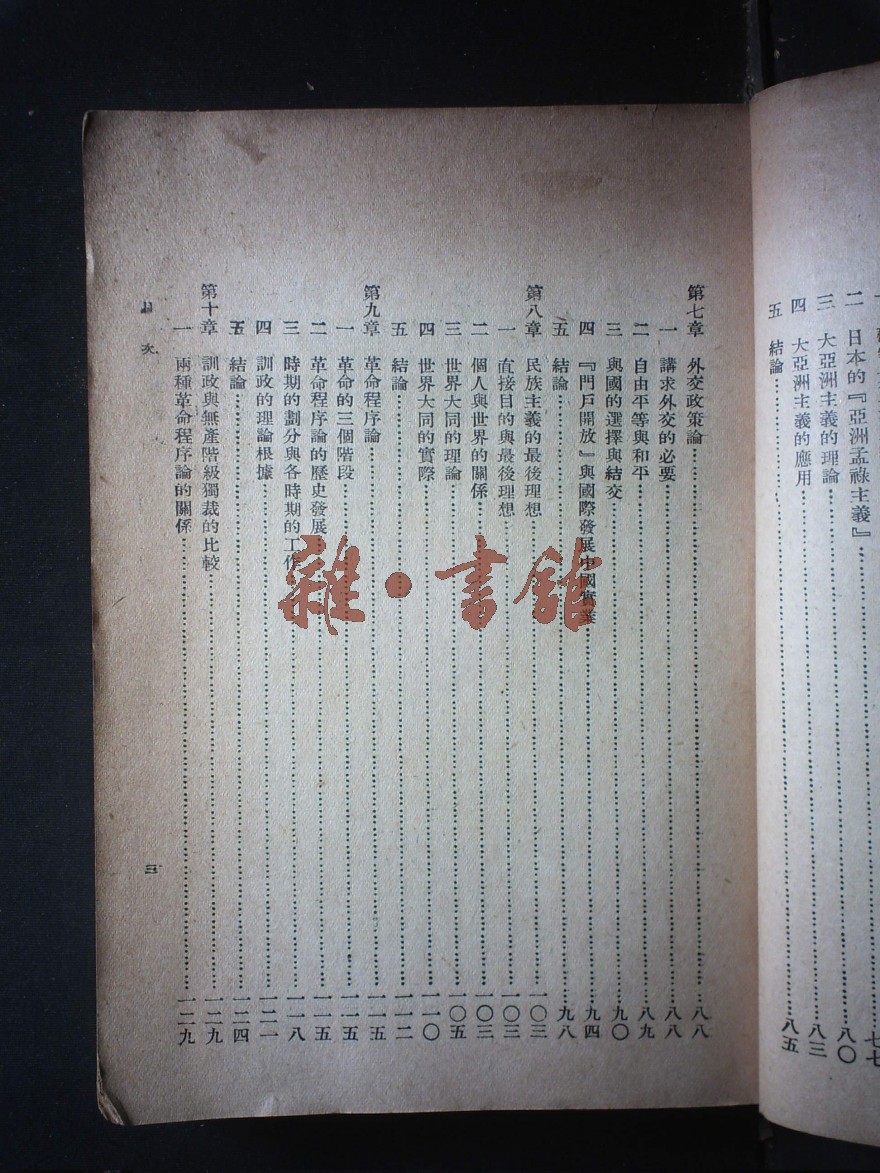 二 日本的『亞洲孟祿主義』……八〇
三 大亞洲主義的理論……八三
四 大亞洲主義的應用
五 結論……八五
第七章 外交政策論……八八
一 講求外交的必要……八八
二 自由平等與和平……八九
三 與國的選擇與結交……九〇
四 『門戶開放』與國際發展中國實業……九四
五 結論……九八
第八章 民族主義的最後理想……一〇三
一 直接目的與最後理想……一〇三
二 個人與世界的關係……一〇三
三 世界大同的理論……一〇五
四 世界大同的實際……一一〇
五 結論……一一二
第九章 革命程序論……一一五
一 革命的三個階段……一一五
二 革命程序論的歷史發展……一一五
三 時期的劃分與各時期的工作……一一八
四 訓政的理論根據……一二一
五 結論……一二四
第十章 訓政與無產階級獨裁的比較……一二九
一 兩種革命程序論的關係……一二九
目次
三
雜·書館